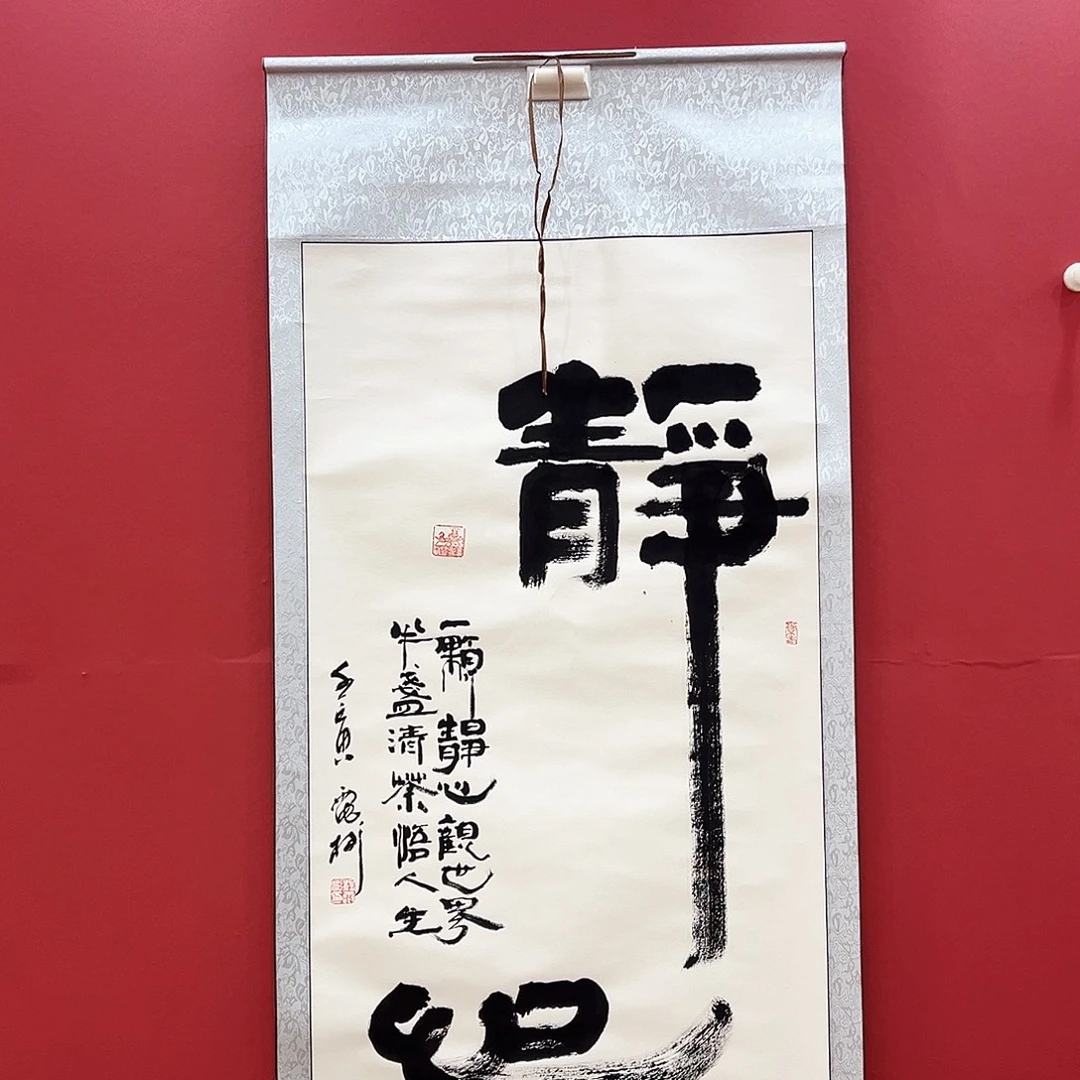 靜
一顆靜心觀世界
半盞清茶悟人生
壬寅